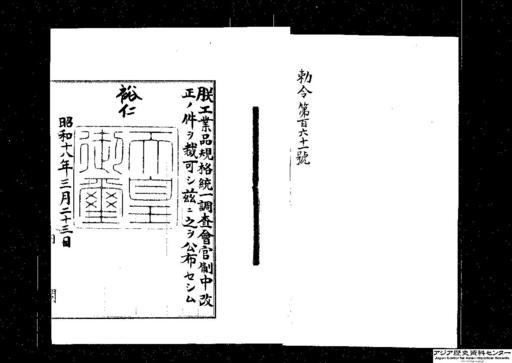 勅令第百六十一號
朕工業品規格統一調査會官制中改
正ノ件ヲ裁可シ茲ニ之ヲ公布セシム
裕仁
天皇
御璽
昭和十八年三月二十三日
アジア歴史資料センター
Japan Center for Asian Historical Records